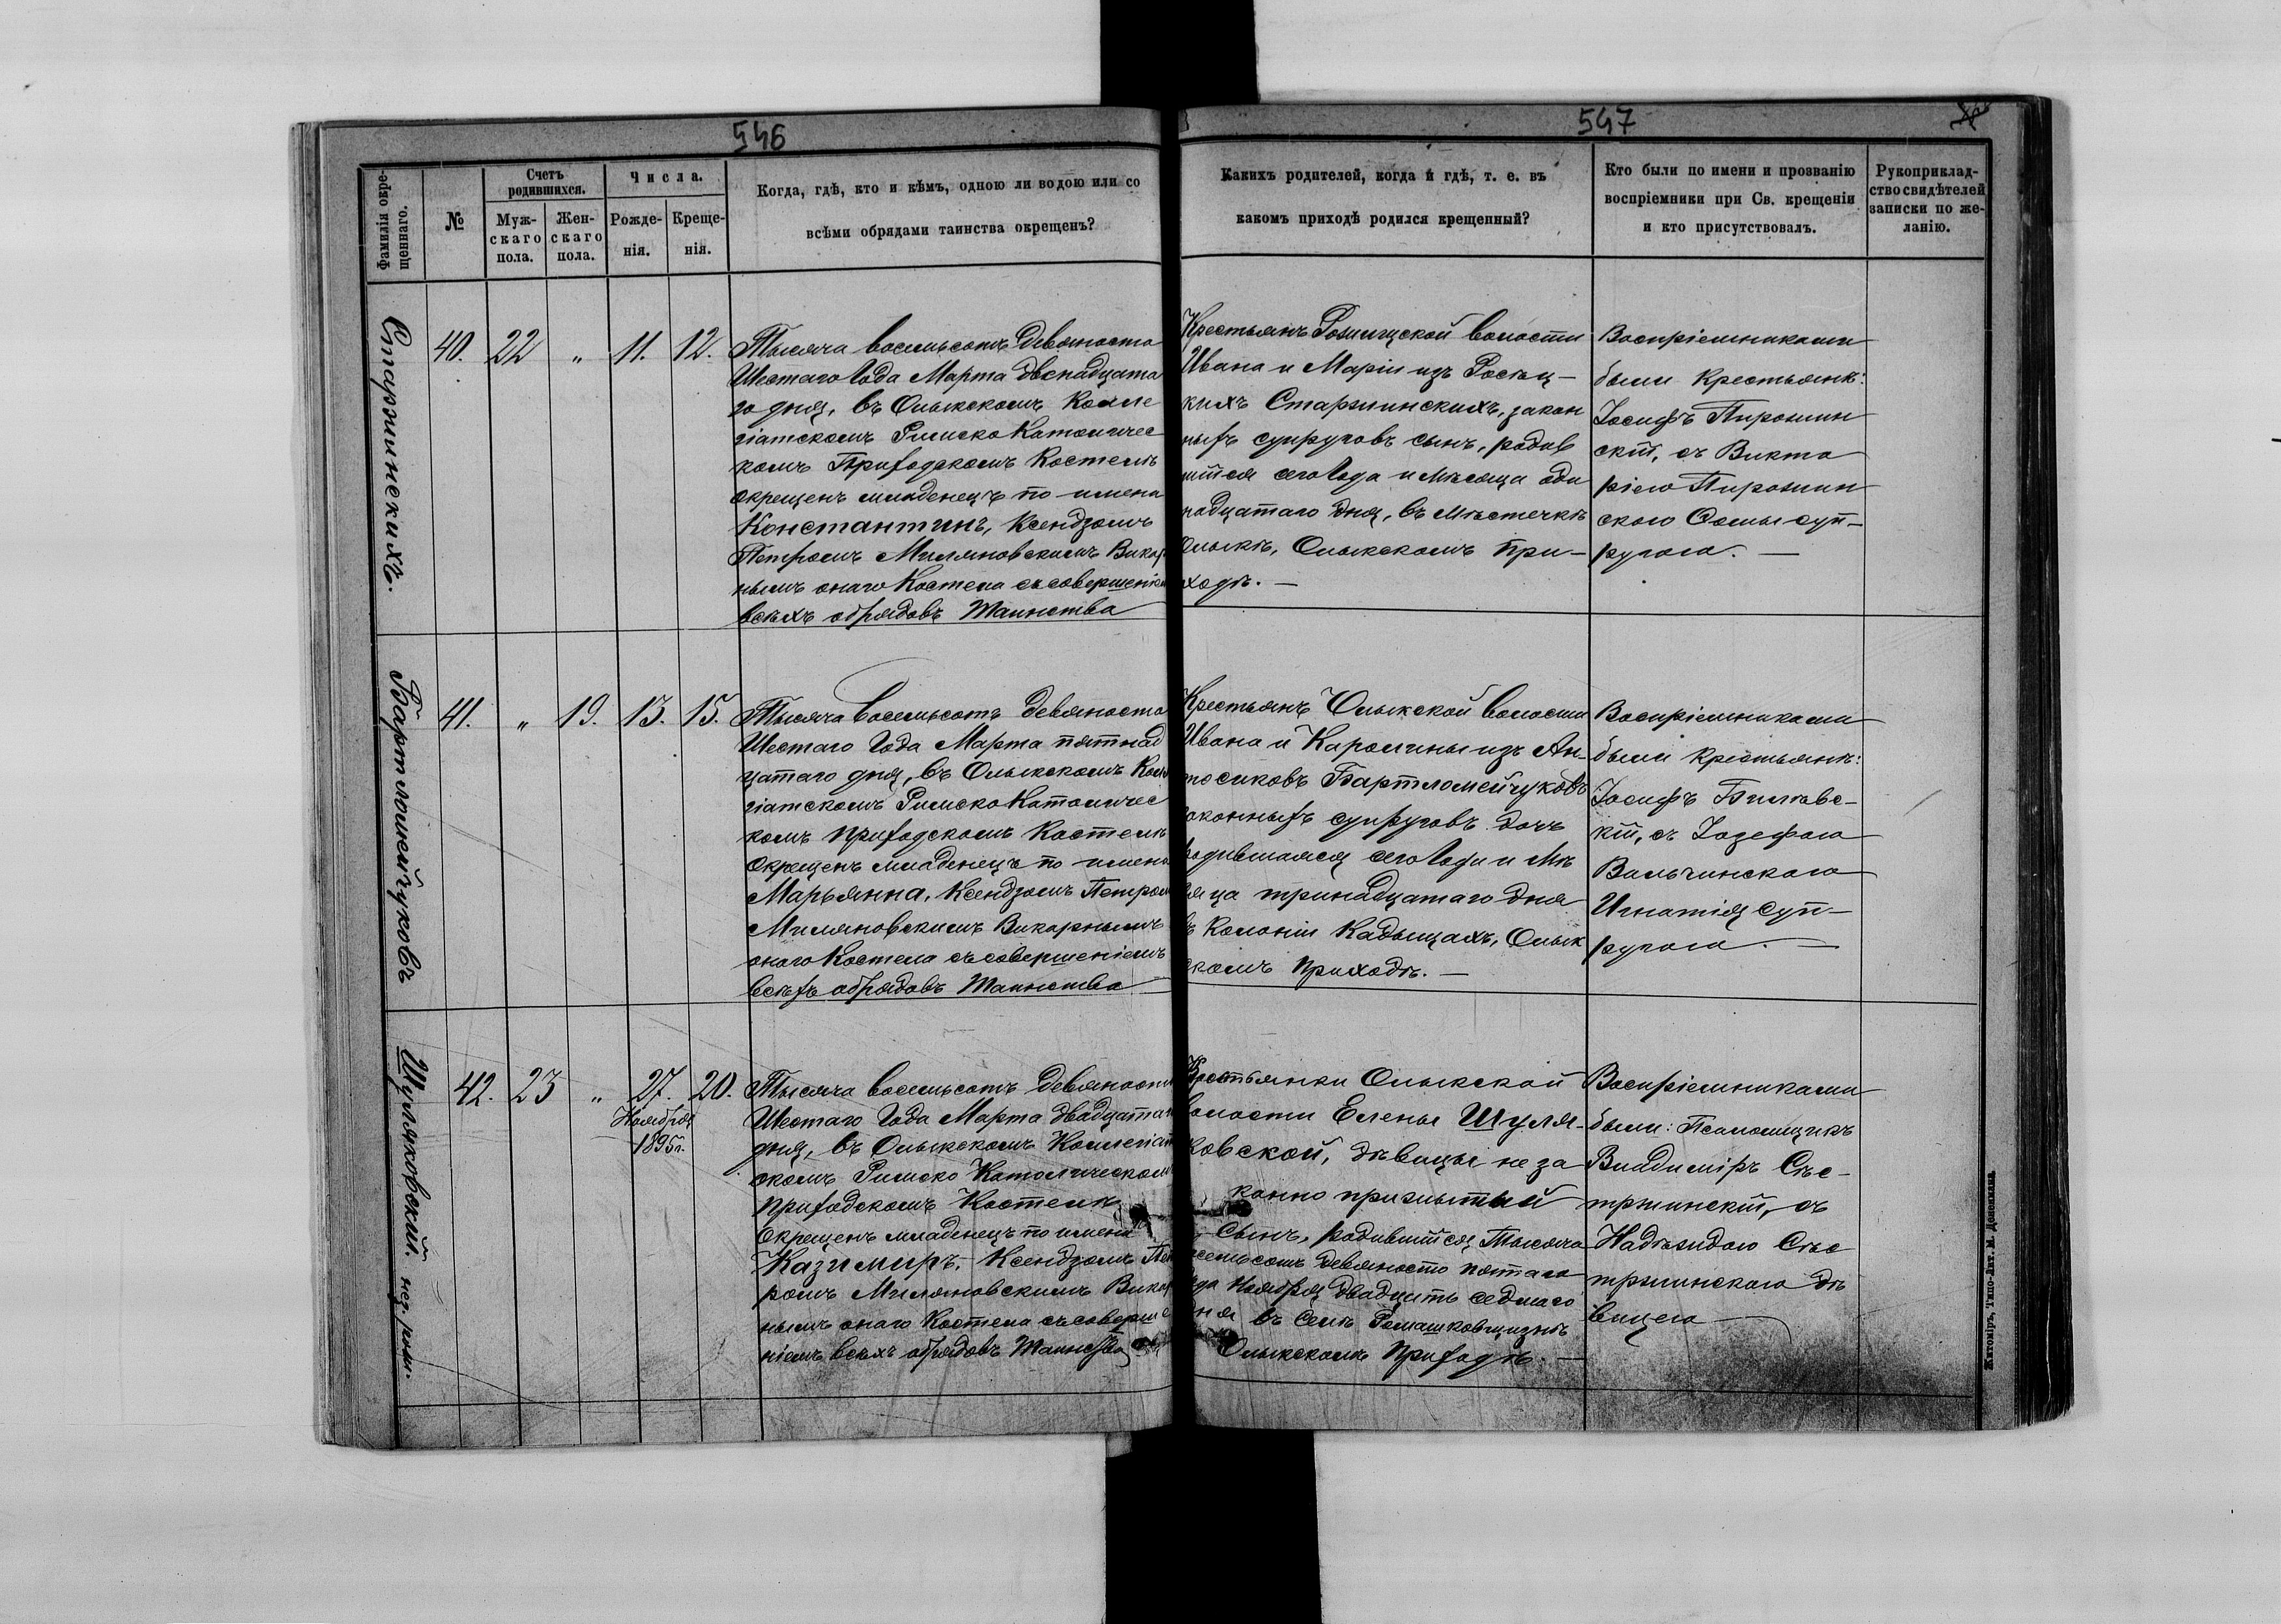 546
Фамилія окре-
щеннаго.
№
Счетъ
родившихся.
Муж-
скаго
пола.
Жен-
скаго
пола.
Числа.
Рожде-
нія.
Креще-
нія.
Когда, гдѣ, кто и кѣмъ, одною ли водою или со
всѣми обрядами таинства окрещенъ?
547
Какихъ родителей, когда и гдѣ, т. е. въ
какомъ приходѣ родился крещенный?
Кто были по имени и прозванію
воспріемники при Св. крещеніи
и кто присутствовалъ.
Рукоприклад-
ство свидѣтелей
записки по же-
ланію.
Старжинскихъ.
40. 22 " 11. 12.
Тысяча восемьсотъ девяносто
Шестаго Года Марта двенадцата
го дня, въ Олыкскомъ Колле
гіатскомъ Римско Католичес
комъ Приходскомъ Костелѣ
окрещенъ младенецъ по имени
Константинъ, Ксендзомъ
Петромъ Миляновскимъ Викар
нымъ онаго Костела съ совершеніем
всѣхъ обрядовъ Таинства
Крестьянъ Рожищской волости
Ивана и Маріи изъ
кихъ Старжинскихъ, закон
ныхъ супруговъ сынъ, родив
шійся сего Года и Мѣсяца оди
надцатаго дня, въ мѣстечкѣ
Олыкѣ, Олыкскомъ При-
ходѣ. —
Воспріемниками
были Крестьянѣ:
Іосифъ Пирожин
скій, съ Викто
ріею Пирожин
скою Ѳомы суп-
ругою. —
Бартломейчуковъ
41. " 19. 13. 15.
Тысяча восемьсотъ девяносто
Шестаго Года Марта пятнад
цатаго дня, въ Олыкскомъ Колле
гіатскомъ Римско Католичес
комъ приходскомъ Костелѣ
Окрещенъ младенецъ по имени
Марьянна, Ксендзомъ Петром
Миляновскимъ Викарнымъ
онаго Костела съ совершеніемъ
всѣхъ обрядовъ Таинства
Крестьянъ Олыкской волости
Ивана и Каролины изъ Ан-
тосиковъ Бартломейчуковъ
законныхъ супруговъ дочь
родившаяся сего Года и Мѣ
сяца тринадцатаго дня
въ Колоніи Кадыщахъ, Олык
скомъ Приходѣ. —
Воспріемниками
были Крестьянѣ:
Іосифъ Билевс-
кій, съ Іозефою
Вильчинскою
Игнатія Суп-
ругою. —
Шуляковскій. нез. рож.
42. 23 " 27. 20.
Ноября
1895г.
Тысяча восемьсотъ девяносто
Шестаго Года Марта двадцатаго
дня, въ Олыкскомъ Коллегіат
скомъ Римско Католическом
приходскомъ Костелѣ
Окрещенъ младенецъ по имени
Казимиръ. Ксендзомъ Пет
ромъ Миляновскимъ Викар
нымъ онаго Костела съ соверше
ніемъ всѣхъ обрядовъ Таинства
Крестьянки Олыкской
волости Елены Шуля-
ковской, дѣвицы неза
конно прижытый
Сынъ, родившійся Тысяча
восемьсотъ девяносто пятаго
года Ноября двадцать седмаго
дня въ Селѣ Ромашковщизнѣ
Олыкскомъ Приходѣ. —
Воспріемниками
были: Псаломщикъ
Владиміръ Сѣс-
тржинскій, съ
Надѣждою Сѣс
тржинскою дѣ
вицею —
Житоміръ, Типо-Лит. М. Дененмана